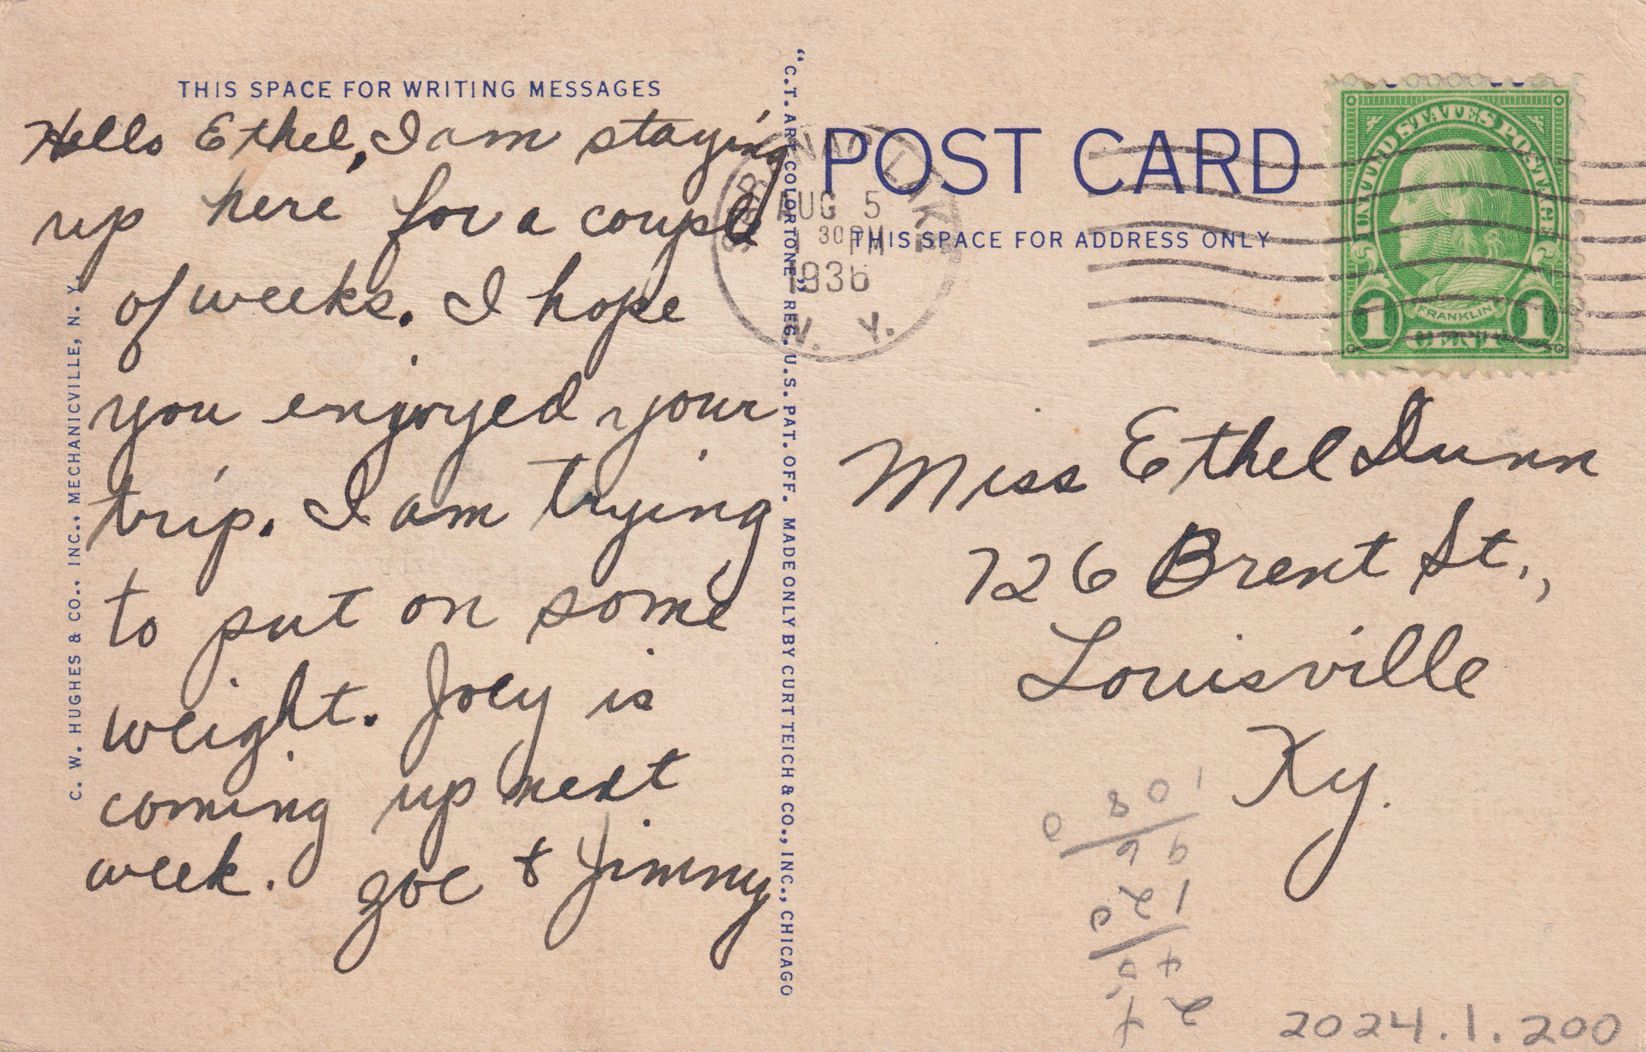 THIS SPACE FOR WRITING MESSAGES
Hello Ethel, I am staying
up here for a couple
of weeks. I hope
you enjoyed your
trip. I am trying
to put on some
weight. Joey is
coming up next
week. Zoe & Jimmy
C. W. HUGHES & CO., INC., MECHANICVILLE, N. Y.
"C.T. ART-COLORTONE" REG. U.S. PAT. OFF. MADE ONLY BY CURT TEICH & CO., INC., CHICAGO
POST CARD
THIS SPACE FOR ADDRESS ONLY
LAKE
AUG 5
30 PM
1936
N. Y.
UNITED STATES POSTAGE
FRANKLIN
1 CENT 1
Miss Ethel Dunn
726 Brent St.,
Louisville
Ky.
2024.1.200